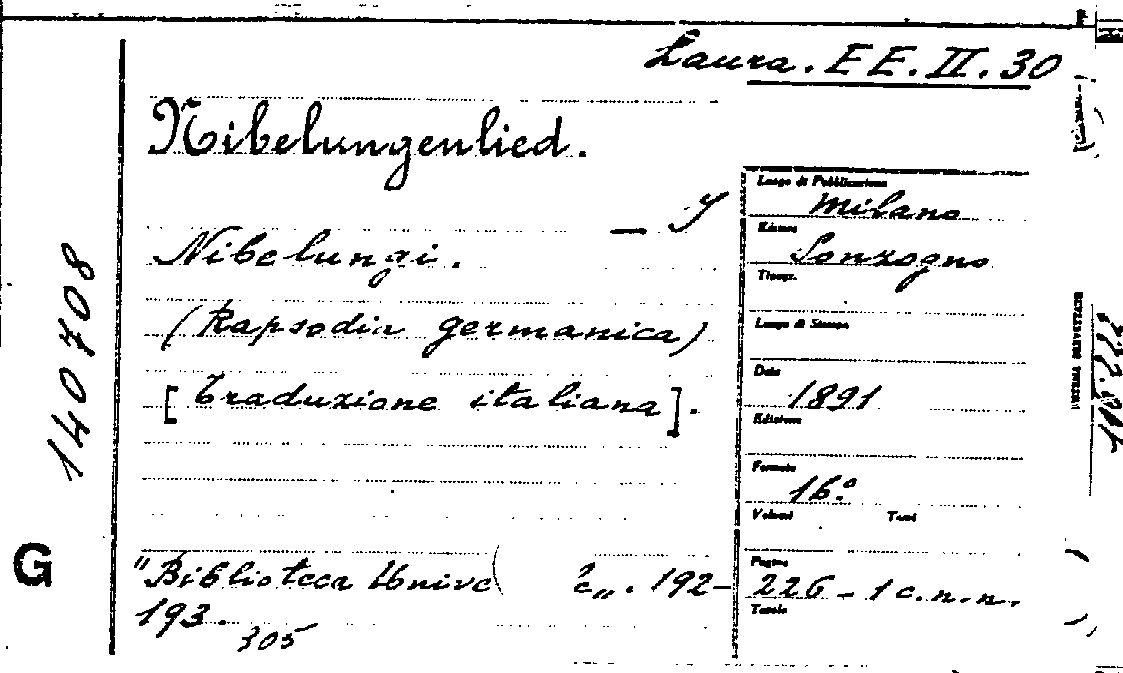 Laura. EE. II. 30
Nibelungenlied.
Nibelungi.
(Rapsodia germanica)
[Traduzione italiana].
"Biblioteca Unive ". 192-
193.
305
Luogo di Pubblicazione
Milano
Editore
Sonzogno
Tipogr.
Luogo di Stampa
Data
1891
Edizione
Formato
16.º
Volumi Tomi
Pagine
226 - 1 c.n.n.
Tavole
140708
G